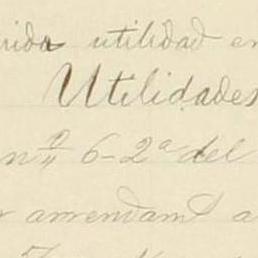 utilidad en
Utilidades
nº 6-2ª del
arrendamto a